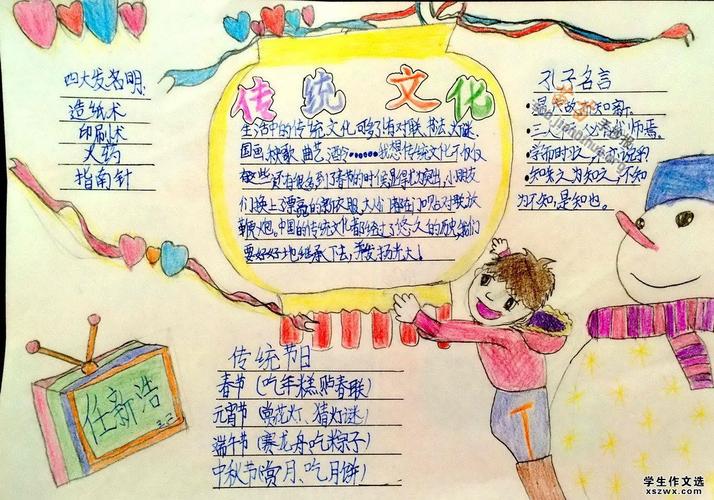 传统文化
四大发名明:
造纸术
印刷术
火药
指南针
生活中的传统文化可多了有对联、书法、灯谜、
国画、秧歌、曲艺、酒令……我想传统文化不仅仅
有这些,还有很多到了春节的时候显得尤为突出,小朋友
们换上了漂亮的新衣服,大人们都在门口贴对联放
鞭炮。中国的传统文化都经过了悠久的历史,我们
要好好地继承下去,并发扬光大!
孔子名言
·温故而知新。
·三人 必 师焉。
·学而时习之,不亦说乎?
·知之为知之,不知
为不知,是知也。
任新浩
三.二
传统节日
春节(吃年糕贴春联)
元宵节(赏花灯、猜灯谜)
端午节(赛龙舟、吃粽子)
中秋节(赏月、吃月饼)
学生作文选
xszwx.com